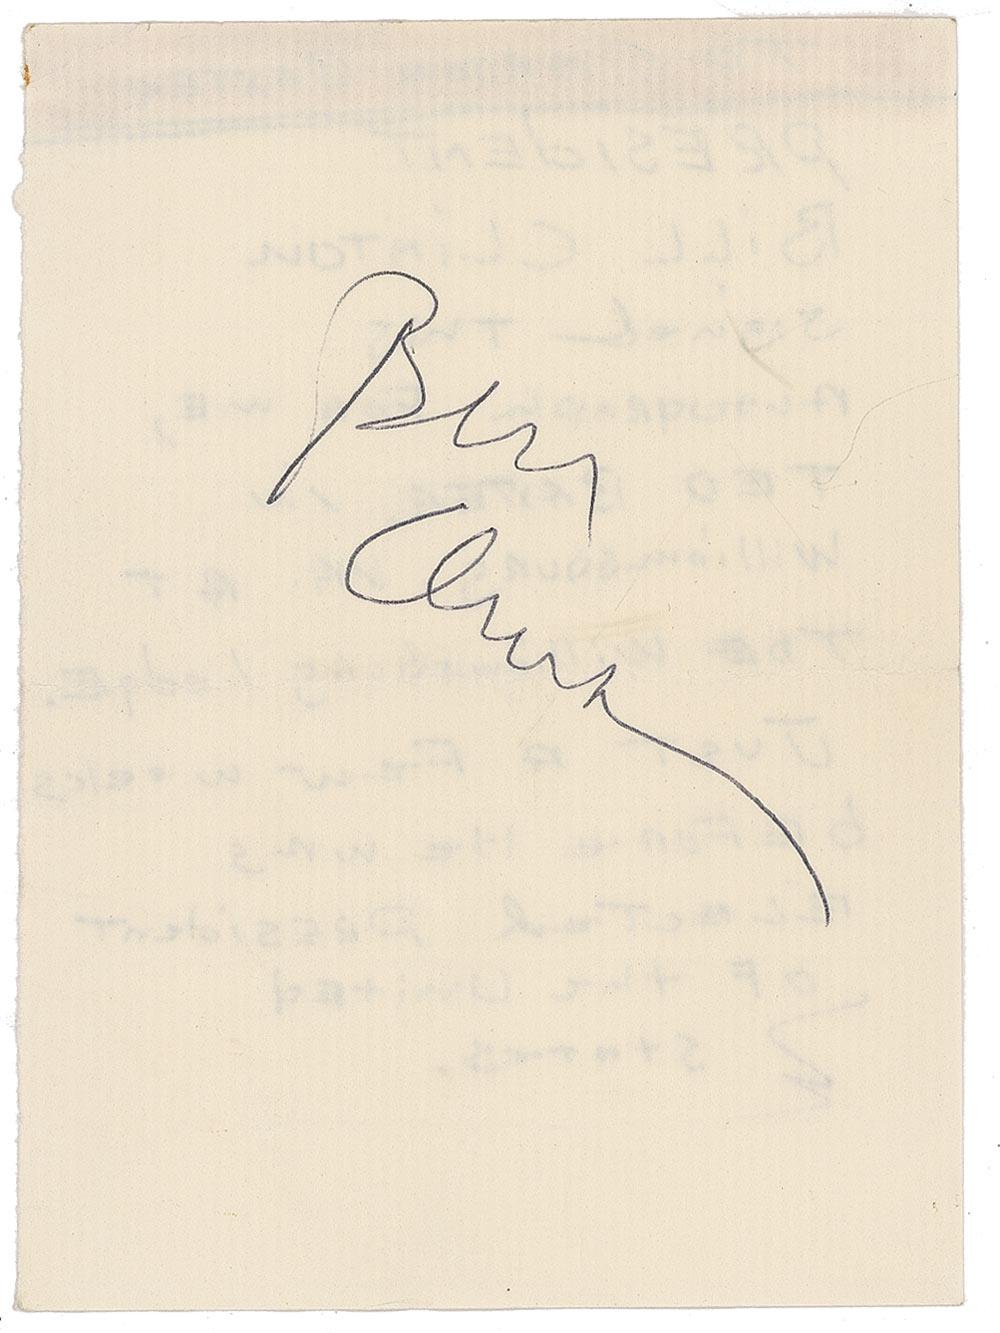 Bill
Clinton
PRESIDENT
BiLL CLiNTON
Signed THIS
AUTOGRAPH FOR ME,
TED IN
WilliamsBURG VA. AT
THE Williamsburg LodgE.
JUST A FEW weeks
bEFORE HE WAS
ELECTED PRESIDENT
OF the UNITED
STATES.